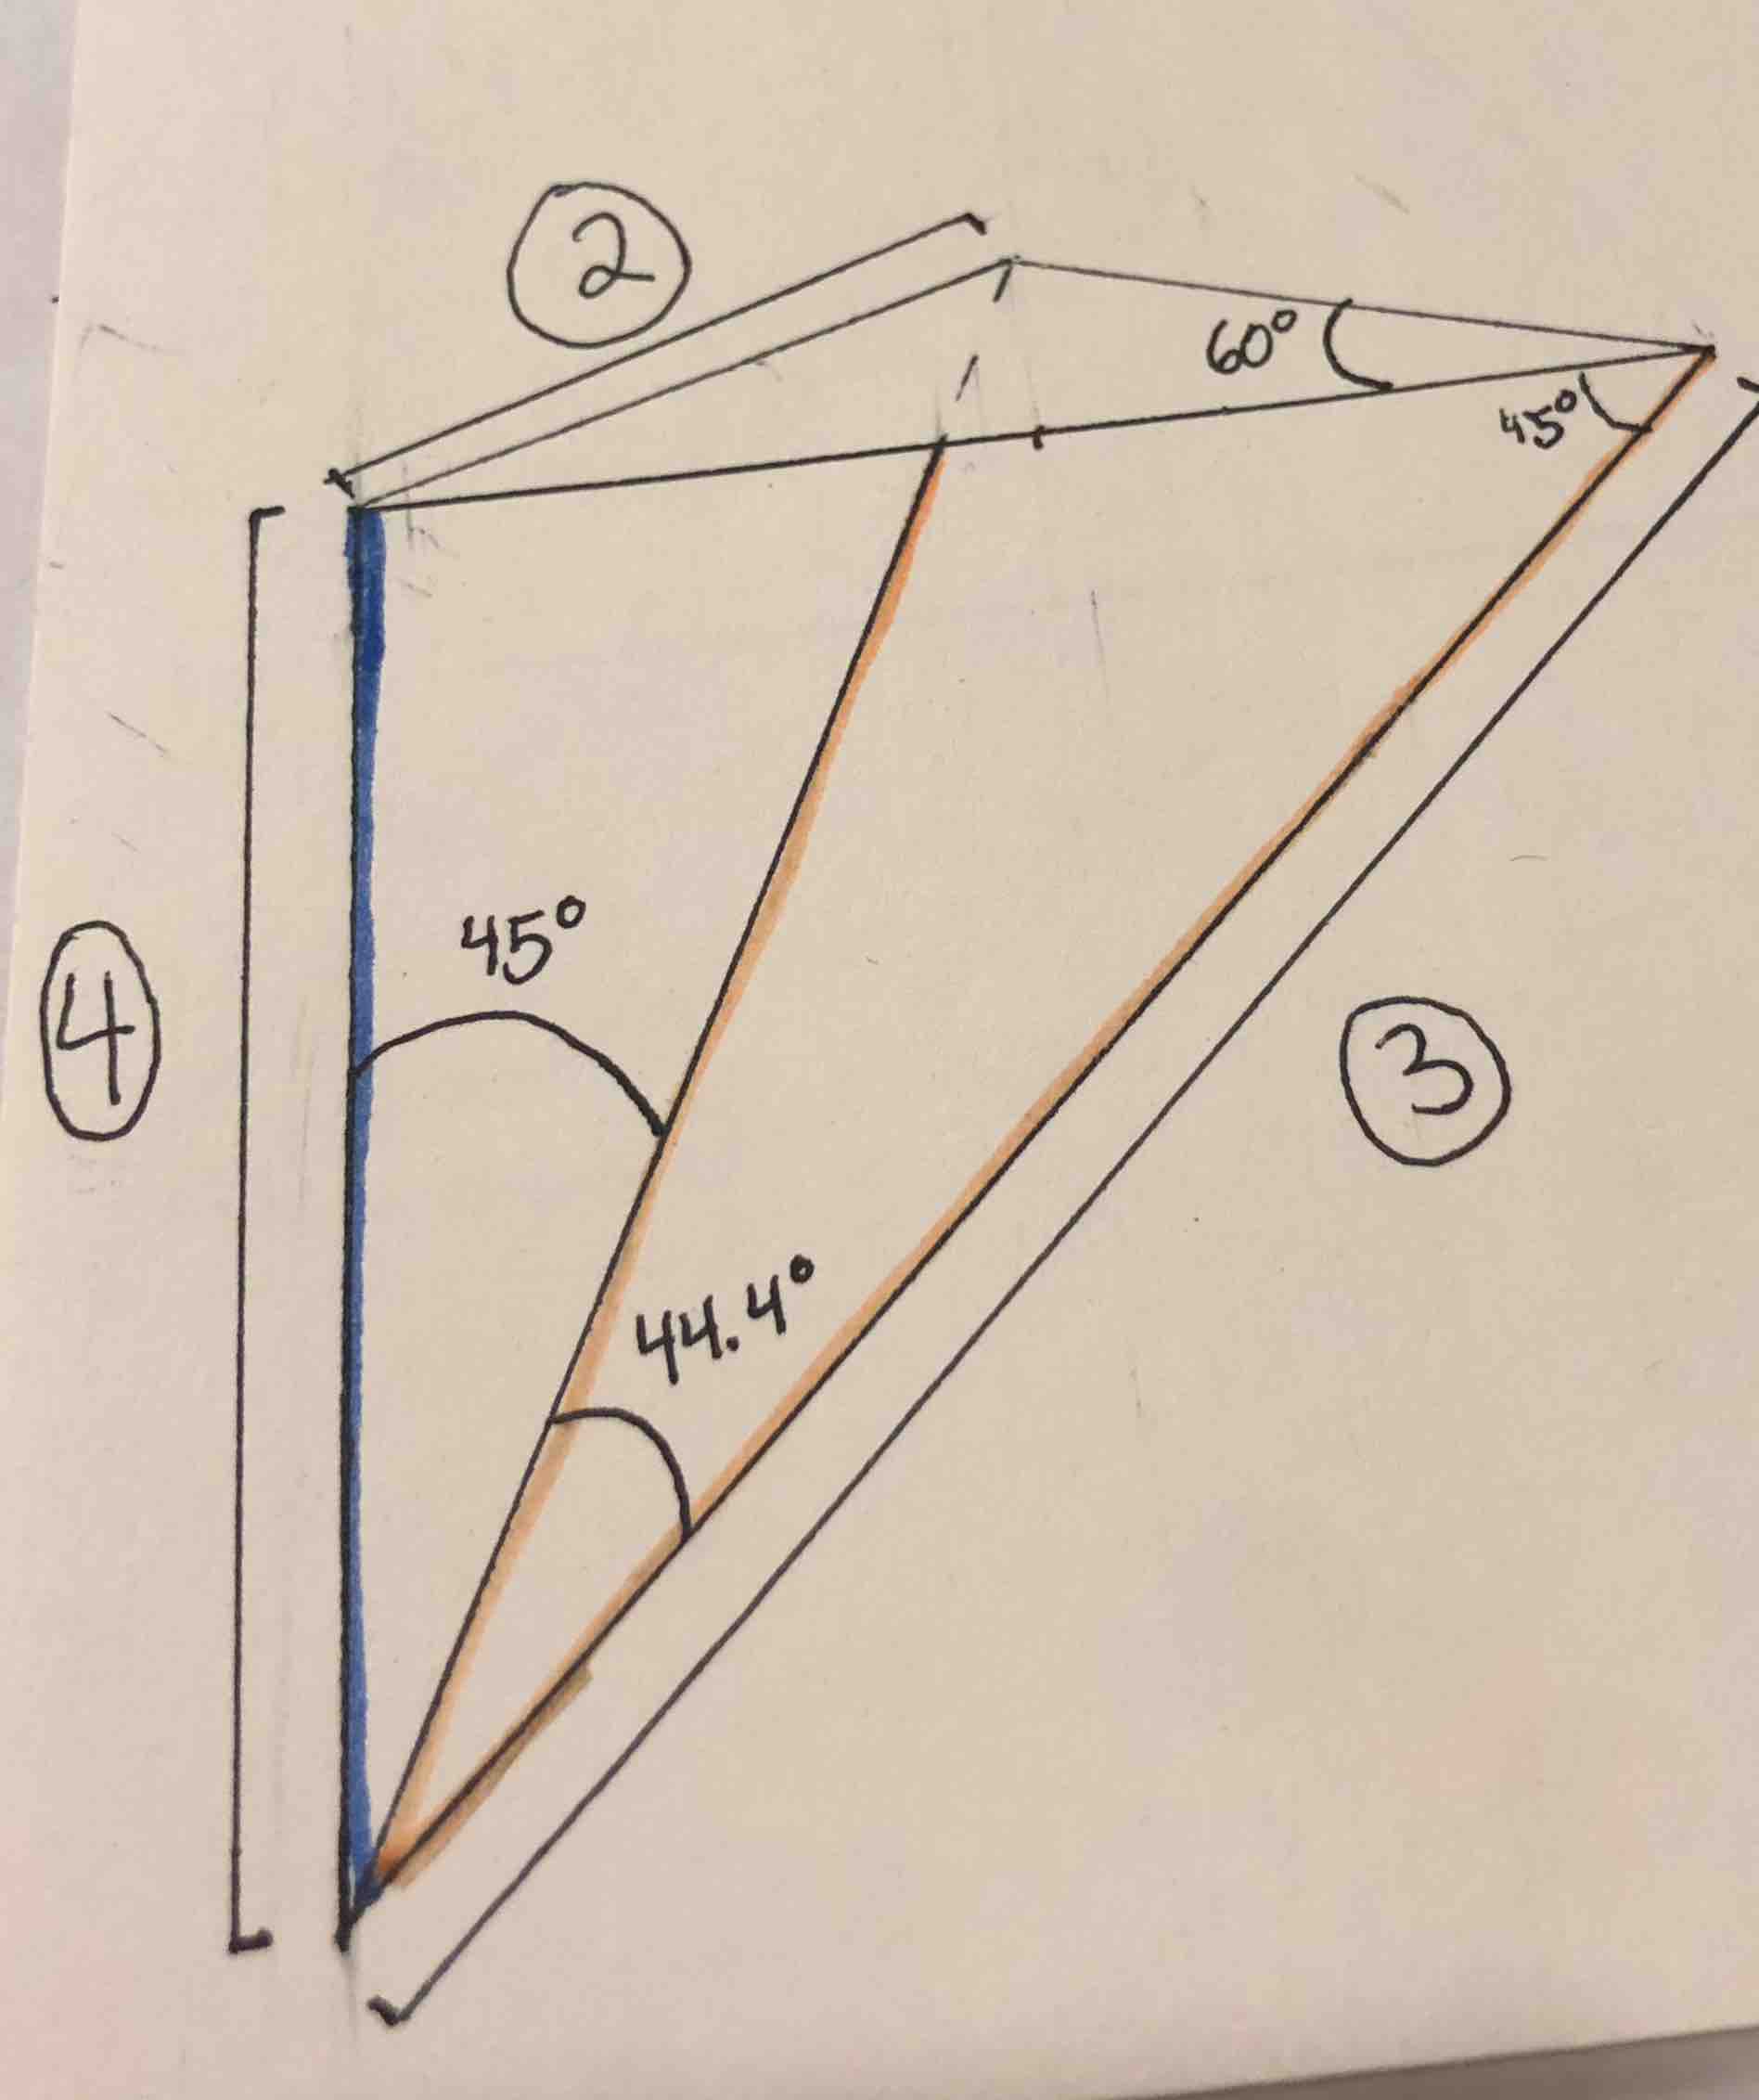 2
60°
45°
45°
4
3
44.4°